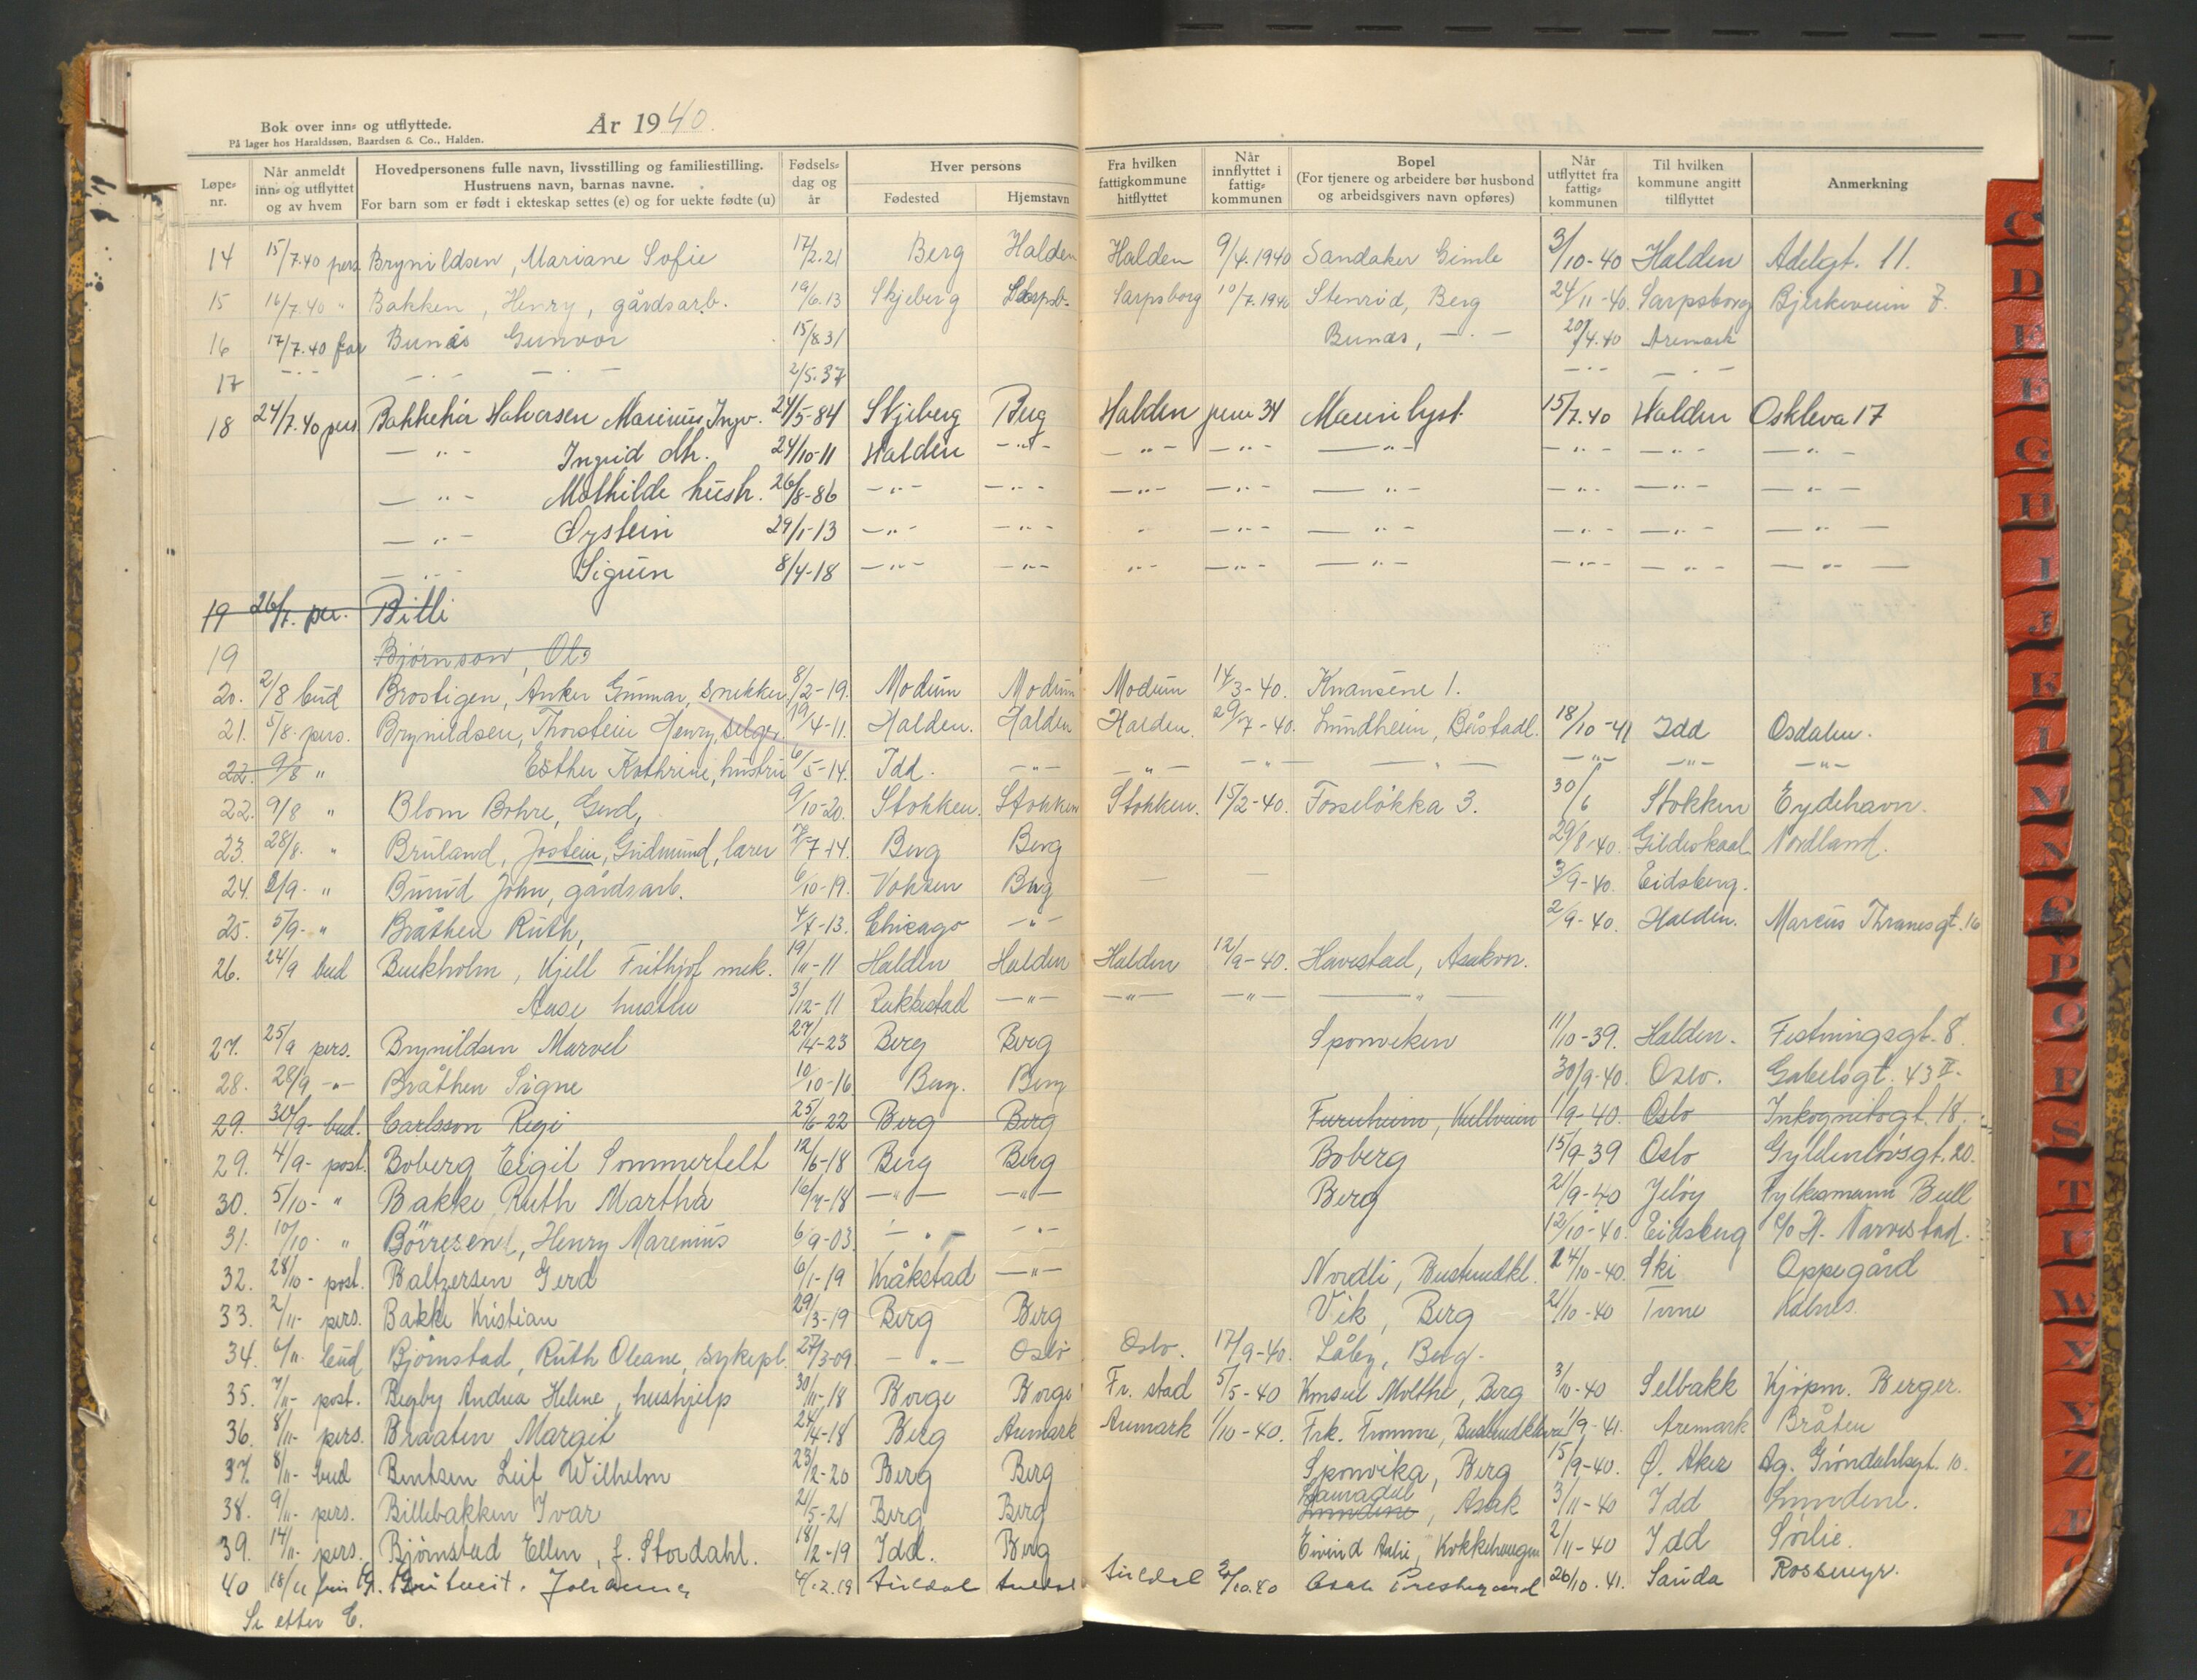 Bok over inn- og utflyttede.
På lager hos Haraldssøn, Baardsen & Co., Halden.
År 1940.
Løpe-nr. Når anmeldt inn- og utflyttet og av hvem Hovedpersonens fulle navn, livsstilling og familiestilling. Hustruens navn, barnas navne. For barn som er født i ekteskap settes (e) og for uekte fødte (u) Fødsels-dag og år Hver persons Fødested Hjemstavn Fra hvilken fattigkommune hitflyttet Når innflyttet i fattig-kommunen Bopel (For tjenere og arbeidere bør husbond og arbeidsgivers navn opføres) Når utflyttet fra fattig-kommunen Til hvilken kommune angitt tilflyttet Anmerkning
14 15/7.40 pers Brynildsen, Mariane Sofie 17/2.21 Berg Halden Halden 9/4.1940 Sandaker Gimle 3/10-40 Halden Adelgt. 11.
15 16/7.40 " Bakken, Henry, gårdsarb. 19/6.13 Skjeberg Sarpsb. Sarpsborg 10/7.1940 Stenrød, Berg 24/11-40. Sarpsborg Bjerkeveien 7.
16 17/7.40 far Bunæs Gunvor 15/8.31 Bunæs, -"- 20/4.40 Aremark
17 -"- -"- -"- 2/5.37 -"- -"-
18 24/7.40 pers Bakkehør Halvorsen Marinius Ingv. 24/5-84 Skjeberg Berg Halden juni 34 Maurilyst 15/7.40 Halden Oskleva 17
-"- Ingrid dh. 24/10-11 Halden -"- -"- -"- -"- -"- -"- -"-
-"- Mathilde hush. 26/8-86 -"- -"- -"- -"- -"- -"- -"- -"-
-"- Øystein 29/1-13 -"- -"- " -"- -"- -"- -"- -"-
-"- Sigrun 8/4-18 -"- -"- -"- -"- -"- -"- -"- -"-
19 26/7. per. Billi
19 Bjørnson, Ols
20. 2/8 bud Brostigen, Anker Gunnar, snekker 8/2-19. Modum Modum Modum 14/3-40. Knausene 1.
21. 5/8. pers. Brynildsen, Thorstein Henry, selger. 19/4-11. Halden. Halden Halden. 29/7-40. Lundheim, Båstadl. 18/10-41 Idd Osdalen.
22. 9/8 " Esther Kathrine, hustru 6/5-14. Idd. -"- -"- -"- -"- -"- -"- -"-
22. 9/8 " Blom Bohre, Gerd, 9/10-20. Stokken. Stokken Stokken. 15/2-40. Fosseløkka 3. 30/6 Stokken Eydehavn.
23. 28/8. " Bruland, Jostein, Gudmund, lærer /7-14. Berg Berg 29/8-40. Gildeskaal Nordland.
24. 2/9. " Buund John, gårdsarb. 6/10-19. Berg — — 3/9-40. Eidsberg.
25. 5/9- " Bråthen Ruth, 4/7-13. Chicago -"- 2/9-40. Halden. Marcus Thranesgt. 16
26. 24/9 bud Buckholm, Kjell Frithjof mek. 19/11-11 Halden Halden Halden 12/9-40. Havestad, Asakvn.
Aase hustru 3/12-11 Rakkestad -"- -"- -"- -"-
27. 25/9 pers. Brynildsen Marvel 27/4-23 Berg Berg Sponviken 11/10-39. Halden. Festningsgt. 8.
28. 28/9 -"- Bråthen Signe 10/10-16 Berg. Berg 30/9-40. Oslo. Gabelsgt. 43 II.
29. 30/9- bud. Carlsson Regi 25/6-22 Berg Berg Furuheim, Kullveien 1/9-40. Oslo Inkognitogt. 18.
29. 4/9- post. Boberg Eigil Sommerfelt 12/6-18 Berg Berg Boberg 15/9-39 Oslo Gyldenløvsgt. 20.
30. 5/10- " Bakke Ruth Martha 16/4-18 -"- -"- Berg 21/9-40 Jeløy Fylkesmann Bull
31. 10/10. " Børresen, Henry Marenius 6/9-03. -"- -"- 12/10-40. Eidsberg c/o H. Narvestad.
32. 28/10- post. Baltzersen Gerd 6/1-19 Kråkstad -"- Nordli, Busterudkl. 24/10-40. Ski Oppegård
33. 2/11- pers. Bakke Kristian 29/3-19 Berg Berg Vik, Berg 21/10-40 Tune Kalnes.
34. 6/11. bud Bjørnstad, Ruth Oleane, sykepl. 27/3-09. -"- Oslo Oslo. 17/9-40. Låby, Berg.
35. 7/11- post. Begby Andrea Helene, hushjelp 30/11-18 Borge Borge Fr.stad 5/5-40 Konsul Molthe, Berg 3/10-40 Selbakk Kjøpm. Berger.
36. 8/11- pers. Braaten Margit 24/4-18 Berg Aremark Aremark 1/10-40. Frk. Tromme, Busterudkleiva 1/9-41. Aremark Bråten
37. 8/11- bud Bentsen Leif Wilhelm 23/2-20 Berg Berg Sponvika, Berg 15/9-40. Ø. Aker Ag. Grøndahlsgt. 10.
38. 9/11- pers. Billebakken Ivar 21/5-21 Berg Berg Lundene, Asak 3/11-40 Idd Lundene.
39. 14/11. pers. Bjørnstad Ellen, f. Stordahl. 18/2-19 Idd. Berg Eivind Aalie, Kokkehaugen 2/11-40 Idd Sørlie.
40 18/11 Johanne 4/2.19 Suldal Suldal Suldal /10.40 Asak Prestegaard 20/10.41. Sauda Rossmyr.
Se etter C.
C
D
E
F
G
H
I
J
K
L
M
N
O
P
Q
R
S
T
U
W
X
Y
Z